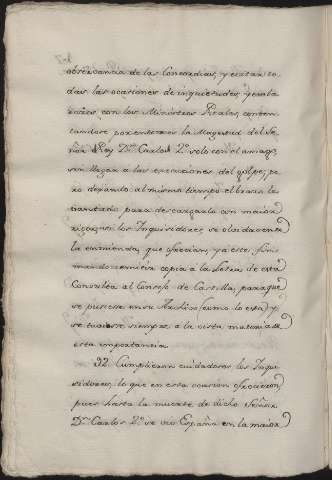 observancia de las Concordias, y evitar to-
das las ocasiones de inquietudes, y embara-
zos con los Ministros Reales, conten-
tandose por entonces la Magestad del Se-
ñor Rey Dn. Carlos 2º solo con el amago,
sin llegar a las execuciones del golpe; pe-
ro dexando al mismo tiempo el brazo le-
vantado para descargarlo con maior
rigor, si los Inquisidores, se olvidaren de
la enmienda, que ofrecian, y a este fin
mandò remitir copia à la letra de esta
Consulta al Consejo de Castilla, para que
se pusiese en su Archivo (como lo està) y
se tuviese siempre à la vista materia de
esta importancia.
92. Cumplieron cuidadosos los Inqui-
sidores, lo que en esta ocasion ofrecieron
pues hasta la muerte de dicho Señor
Dn. Carlos 2º se vio España en la maior